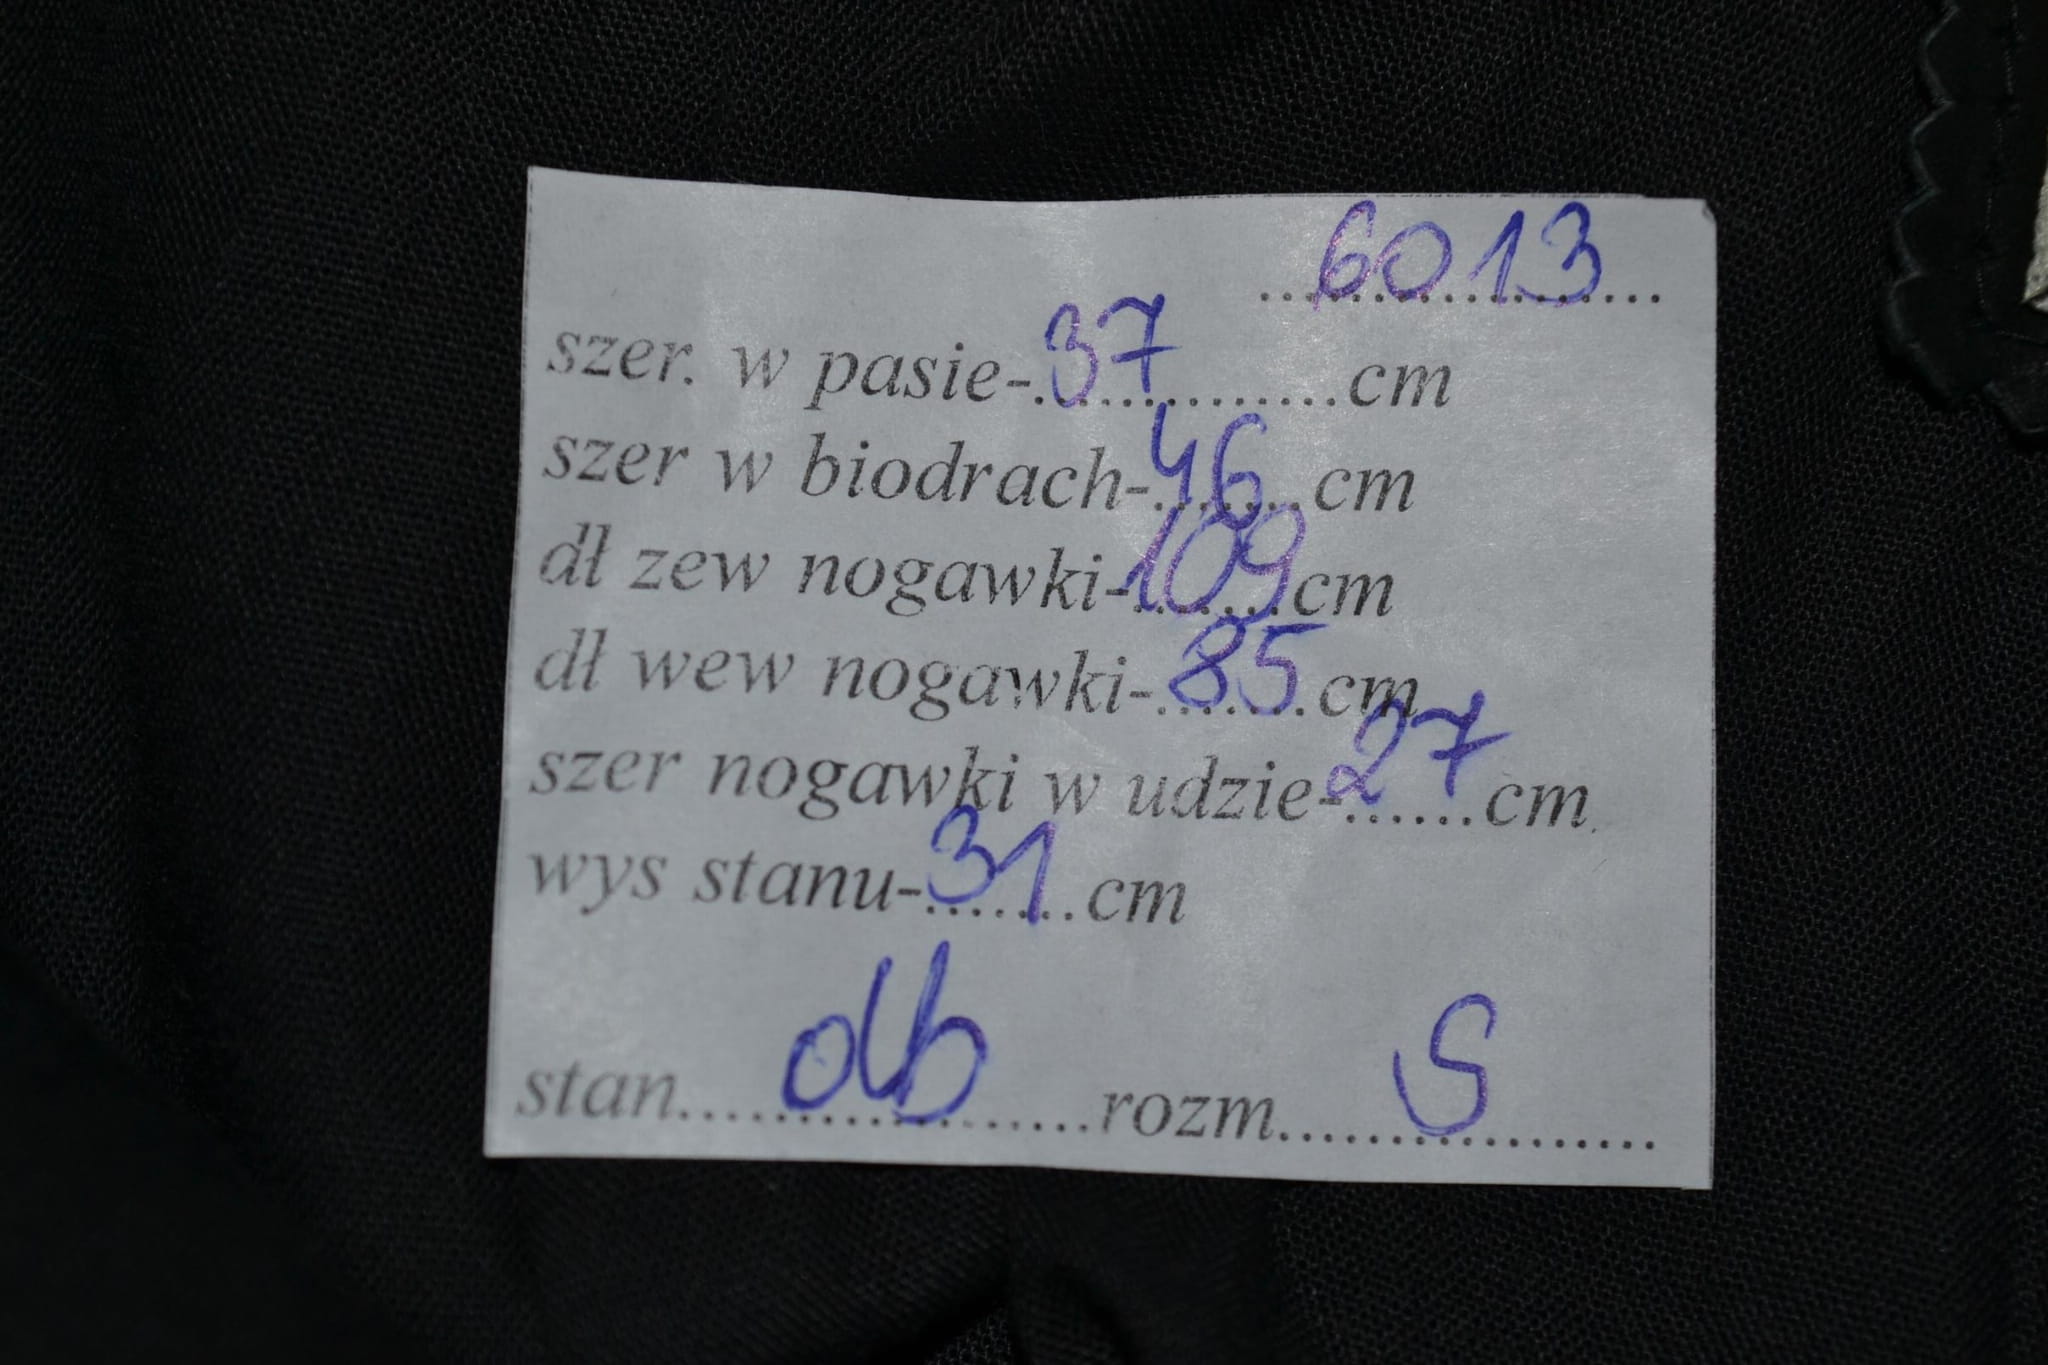 6013
szer. w pasie-37cm
szer w biodrach-46cm
dł zew nogawki-109cm
dł wew nogawki-85cm
szer nogawki w udzie-27cm
wys stanu-31cm
stan db rozm S